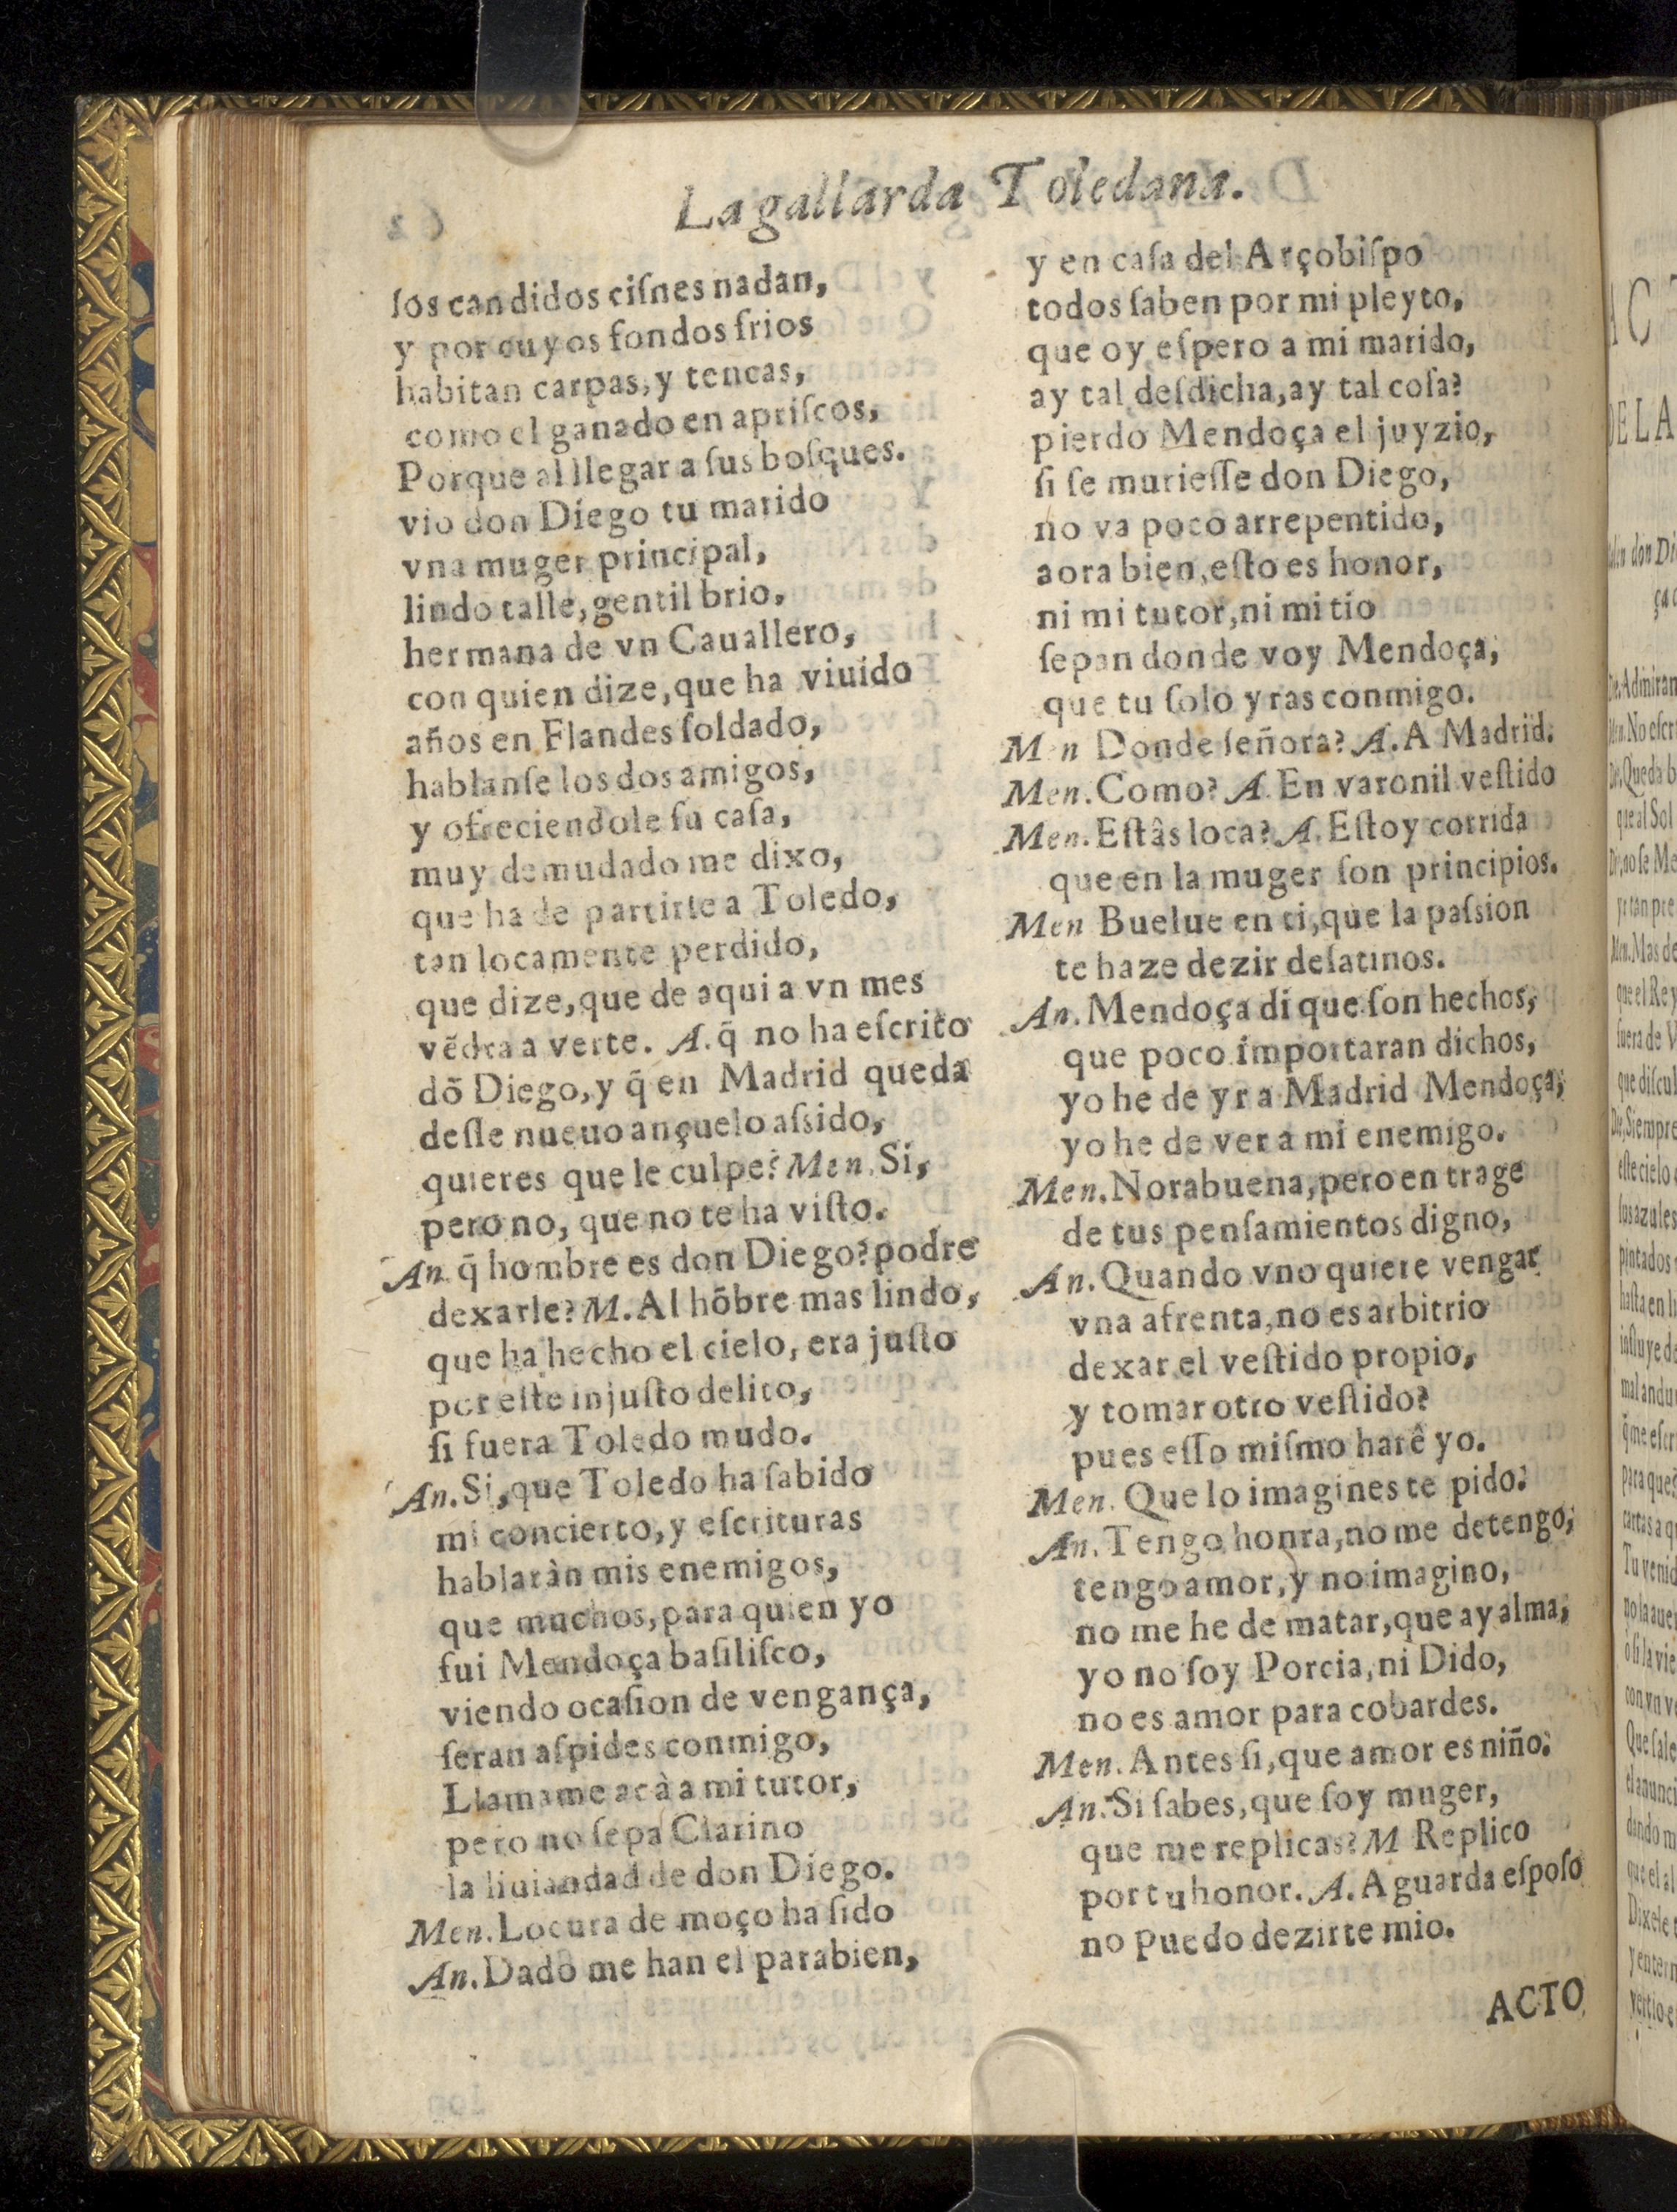 La gallarda Toledana.
ſos candidos ciſnes nadan,
y por cuyos fondos frios
habitan carpas, y tencas,
como el ganado en apriſcos,
Porque al llegar a ſus boſques.
vio don Diego tu marido
vna muger principal,
lindo talle, gentil brio,
hermana de vn Cauallero,
con quien dize, que ha viuido
años en Flandes ſoldado,
hablanſe los dos amigos,
y ofreciendole ſu caſa,
muy demudado me dixo,
que ha de partirſe a Toledo,
tan locamente perdido,
que dize, que de aqui a vn mes
vẽdra a verte. A. q̃ no ha eſcrito
dõ Diego, y q̃ en Madrid queda
deſſe nueuo ançuelo aſsido,
quieres que le culpe? Men. Si,
pero no, que no te ha viſto.
An. q̃ hombre es don Diego? podre
dexarle? M. Al hõbre mas lindo,
que ha hecho el cielo, era juſto
por eſte injuſto delito,
ſi fuera Toledo mudo.
An. Si, que Toledo ha ſabido
mi concierto, y eſcrituras
hablaràn mis enemigos,
que muchos, para quien yo
fui Mendoça baſiliſco,
viendo ocaſion de vengança,
ſeran aſpides conmigo,
Llamame acà a mi tutor,
pero no ſepa Clarino
la liuiandad de don Diego.
Men. Locura de moço ha ſido
An. Dado me han el parabien,
y en caſa del Arçobiſpo
todos ſaben por mi pleyto,
que oy eſpero a mi marido,
ay tal deſdicha, ay tal coſa?
pierdo Mendoça el juyzio,
ſi ſe murieſſe don Diego,
no va poco arrepentido,
aora bien, eſto es honor,
ni mi tutor, ni mi tio
ſepan donde voy Mendoça,
que tu ſolo yras conmigo.
Men Donde ſeñora? A. A Madrid.
Men. Como? A. En varonil veſtido
Men. Eſtâs loca? A. Eſtoy corrida
que en la muger ſon principios.
Men Buelue en ti, que la paſsion
te haze dezir deſatinos.
An. Mendoça di que ſon hechos,
que poco importaran dichos,
yo he de yr a Madrid Mendoça,
yo he de ver a mi enemigo.
Men. Norabuena, pero en trage
de tus penſamientos digno,
An. Quando vno quiere vengar
vna afrenta, no es arbitrio
dexar el veſtido propio,
y tomar otro veſtido?
pues eſſo miſmo harê yo.
Men. Que lo imagines te pido.
An. Tengo honra, no me detengo,
tengo amor, y no imagino,
no me he de matar, que ay alma,
yo no ſoy Porcia, ni Dido,
no es amor para cobardes.
Men. Antes ſi, que amor es niño.
An. Si ſabes, que ſoy muger,
que me replicas? M Replico
por tu honor. A. Aguarda eſpoſo
no puedo dezirte mio.
ACTO